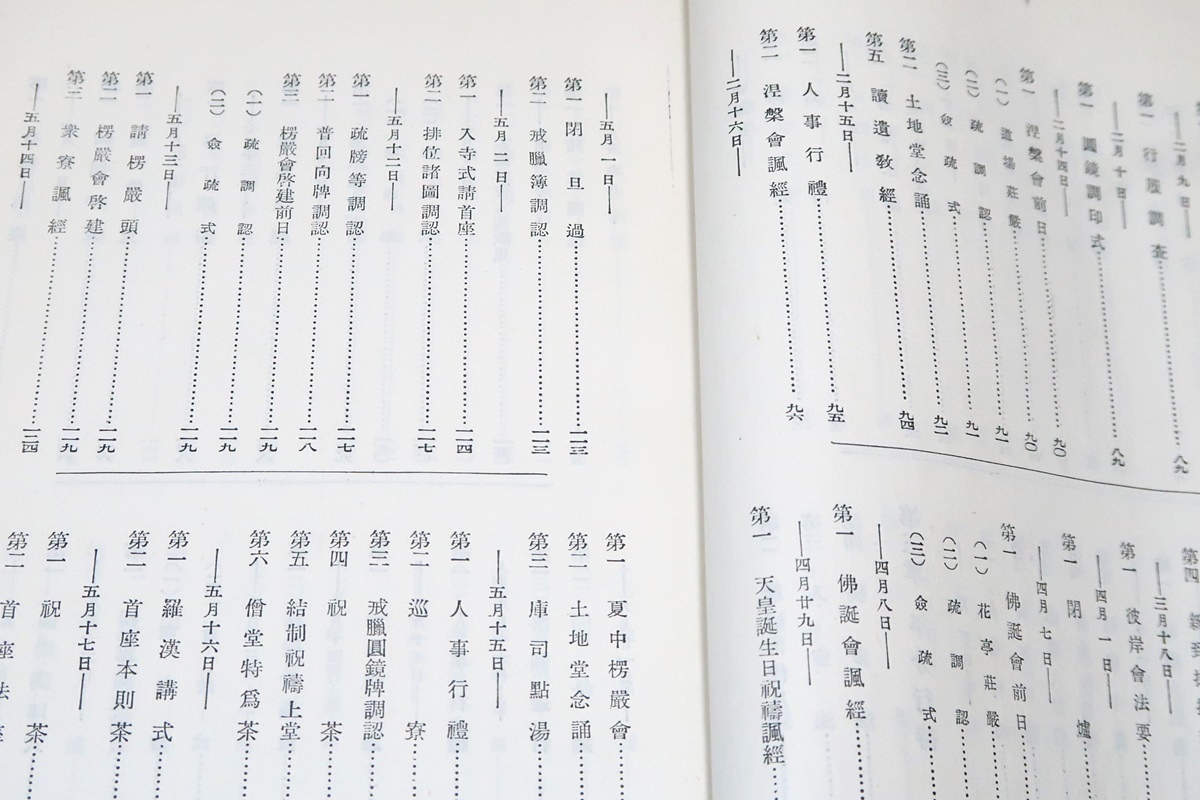 ―二月九日―
第一 行履調査 八九
―二月十日―
第一 圓鏡調印式 八九
―二月十四日―
第一 涅槃會前日 九〇
(一) 道場莊嚴 九〇
(二) 疏調認 九一
(三) 僉疏式 九一
第二 土地堂念誦 九二
第五 讀遺敎經 九四
―二月十五日―
第一 人事行禮 九五
第二 涅槃會諷經 九六
―二月十六日―
第四
―三月十八日―
第一 彼岸會法要
―四月一日―
第一 閉爐
―四月七日―
第一 佛誕會前日
(一) 花亭莊嚴
(二) 疏調認
(三) 僉疏式
―四月八日―
第一 佛誕會諷經
―四月廿九日―
第一 天皇誕生日祝禱諷經
―五月一日―
第一 閉旦過 一一三
第二 戒臘簿調認 一一三
―五月二日―
第一 入寺式請首座 一一四
第二 排位諸圖調認 一一七
―五月十二日―
第一 疏牓等調認 一一七
第二 普回向牌調認 一一八
第三 楞嚴會啓建前日 一一九
(一) 疏調認 一一九
(二) 僉疏式 一一九
―五月十三日―
第一 請楞嚴頭 一一九
第二 楞嚴會啓建 一一九
第三 衆寮諷經 一二四
―五月十四日―
第一 夏中楞嚴會
第二 土地堂念誦
第三 庫司點湯
―五月十五日―
第一 人事行禮
第二 巡寮
第三 戒臘圓鏡牌調認
第四 祝茶
第五 結制祝禱上堂
第六 僧堂特爲茶
―五月十六日―
第一 羅漢講式
第二 首座本則茶
―五月十七日―
第一 祝茶
第二 首座法座